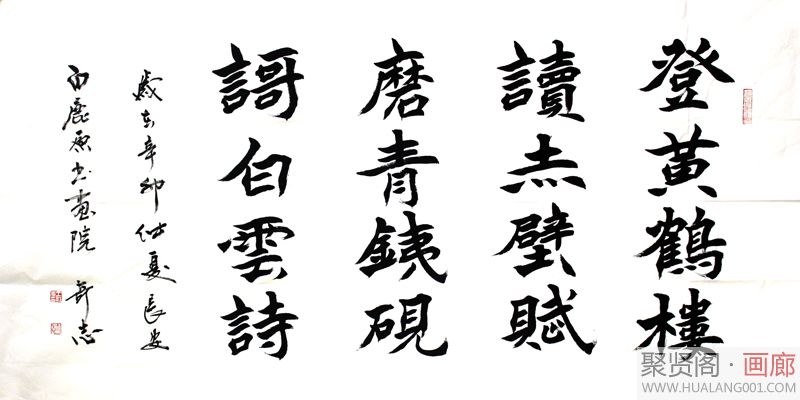 登黄鶴樓
讀赤壁賦
磨青銕硯
謌白雲詩
歲在辛卯仲夏長安
白鹿原书畫院
聚贤阁·画廊
WWW.HUALANG001.COM